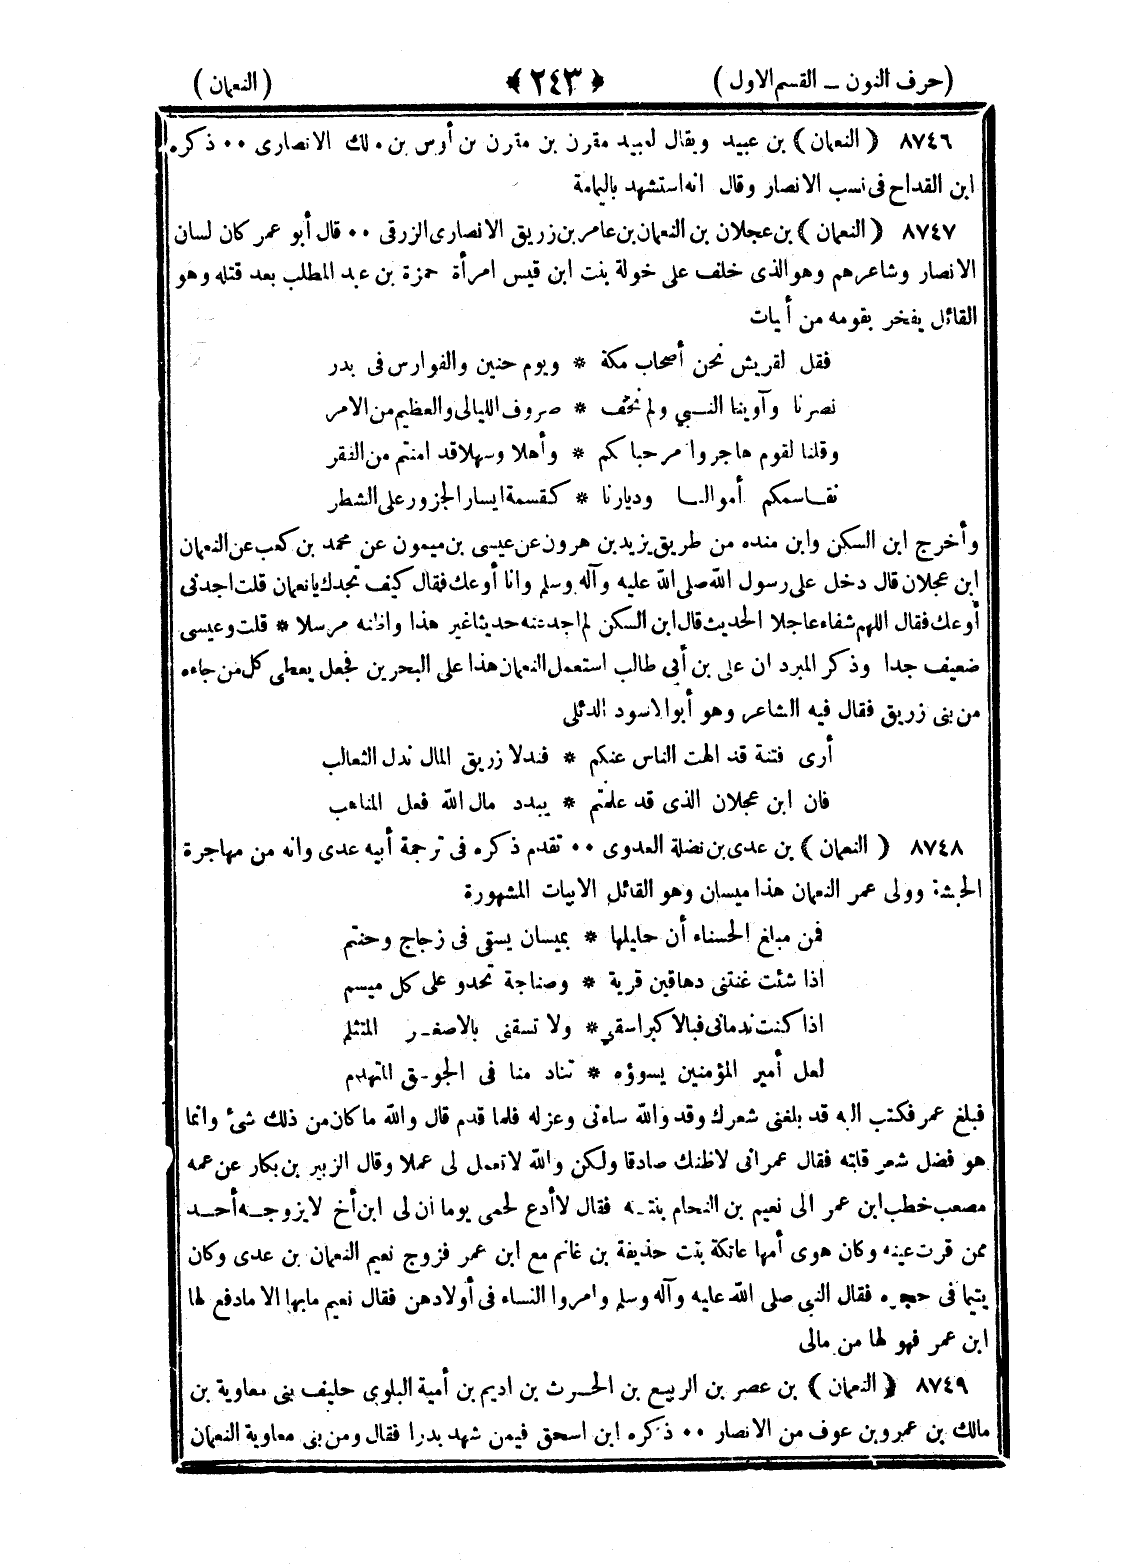 (حرف النون ــ القسم الاول) ﴿ ٢٤٣ ﴾ (النعمان)
٨٧٤٦ ﴿ النعمان ﴾ بن عبيد ويقال لعبيد مقرن بن مقرن بن أوس بن مالك الانصارى ٠٠ ذكره
ابن القداح فى نسب الانصار وقال انه استشهد باليمامة
٨٧٤٧ ﴿ النعمان ﴾ بن عجلان بن النعمان بن عامر بن زريق الانصارى الزرقى ٠٠ قال أبو عمر كان لسان
الانصار وشاعرهم وهو الذى خلف على خولة بنت ابن قيس امرأة حمزة بن عبد المطلب بعد قتله وهو
القائل يفخر بقومه من أبيات
فقل لقريش نحن أصحاب مكة * ويوم حنين والفوارس فى بدر
نصرنا وآوينا النبي ولم نخف * صروف الليالى والعظيم من الامر
وقلنا لقوم هاجروا مرحبا بكم * وأهلا وسهلا قد امنتم من الفقر
نقاسمكم أموالنا وديارنا * كقسمة ايسار الجزور على الشطر
وأخرج ابن السكن وابن منده من طريق يزيد بن هرون عن عيسى بن ميمون عن محمد بن كعب عن النعمان
ابن عجلان قال دخل على رسول الله صلى الله عليه وآله وسلم وانا أوعك فقال كيف تجدك يا نعمان قلت اجدنى
أوعك فقال اللهم شفاء عاجلا الحديث قال ابن السكن لم اجد عنه حديثا غير هذا واظنه مرسلا * قلت وعيسى
ضعيف جدا وذكر المبرد ان على بن أبى طالب استعمل النعمان هذا على البحرين فجعل يعطى كل من جاءه
من بنى زريق فقال فيه الشاعر وهو أبو الاسود الدئلى
أرى فتنة قد الهت الناس عنكم * فندلا زريق المال ندل الثعالب
فان ابن عجلان الذى قد علمتم * يبدد مال الله فعل المناهب
٨٧٤٨ ﴿ النعمان ﴾ بن عدى بن نضلة العدوى ٠٠ تقدم ذكره فى ترجمة أبيه عدى وانه من مهاجرة
الحبشة وولى عمر النعمان هذا ميسان وهو القائل الابيات المشهورة
فمن مبلغ الحسناء أن حليلها * بميسان يسقى فى زجاج وحنتم
اذا شئت غنتنى دهاقين قرية * وصناجة تحدو على كل ميسم
اذا كنت ندمانى فبالاكبر اسقني * ولا تسقنى بالاصغر المتثلم
لعل أمير المؤمنين يسوؤه * تنادمنا فى الجوسق المتهدم
فبلغ عمر فكتب اليه قد بلغنى شعرك وقد والله ساءنى وعزله فلما قدم قال والله ما كان من ذلك شئ وانما
هو فضل شعر قلته فقال عمر انى لاظنك صادقا ولكن والله لا تعمل لى عملا وقال الزبير بن بكار عن عمه
مصعب خطب ابن عمر الى نعيم بن النحام بنته فقال لا أدع لحمى يوما ان لى ابن أخ لا يزوجه أحد
ممن قرت عينه وكان هوى أمها عاتكة بنت حذيفة بن غانم مع ابن عمر فزوج نعيم النعمان بن عدى وكان
يتيما فى حجره فقال النبى صلى الله عليه وآله وسلم وامروا النساء فى أولادهن فقال نعيم مابها الا مادفع لها
ابن عمر فهو لها من مالى
٨٧٤٩ ﴿ النعمان ﴾ بن عصر بن الربيع بن الحرث بن اديم بن أمية البلوى حليف بنى معاوية بن
مالك بن عمرو بن عوف من الانصار ٠٠ ذكره ابن اسحق فيمن شهد بدرا فقال ومن بنى معاوية النعمان